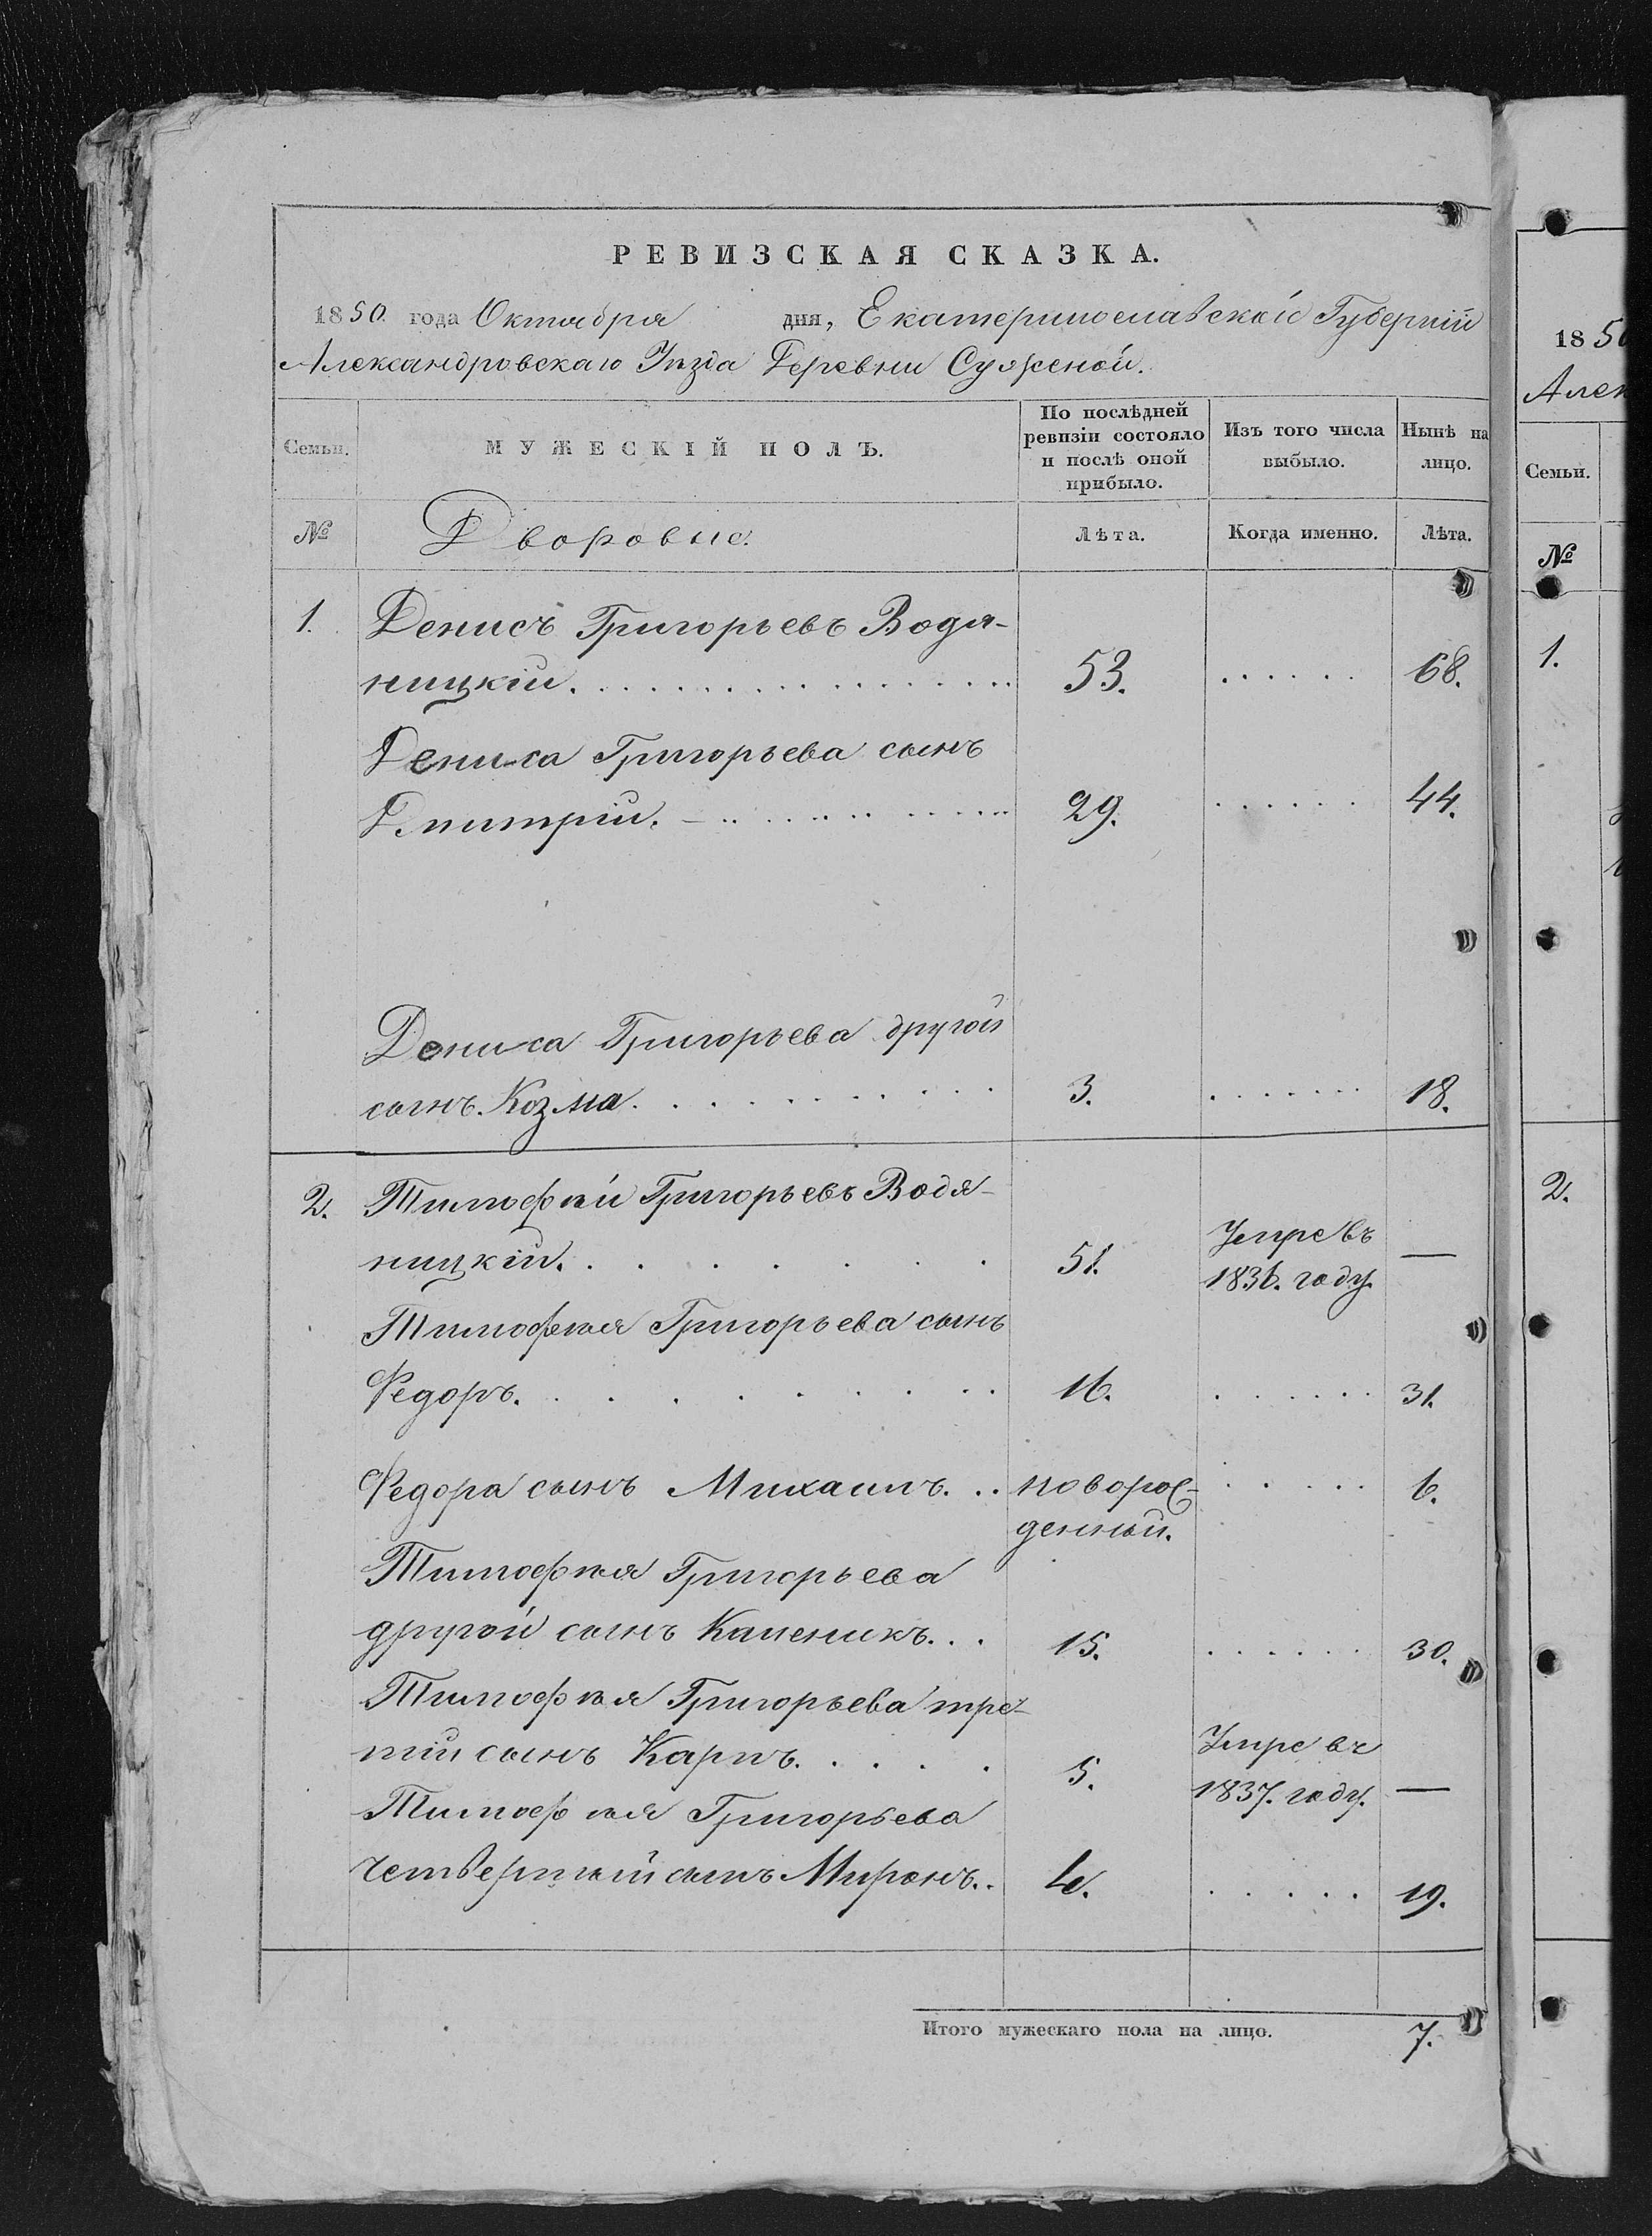 РЕВИЗСКАЯ СКАЗКА.
1850. года Октября дня, Екатеринославской Губерніи
Александровскаго Уѣзда Деревни Суженой.
Семьи. МУЖЕСКІЙ ПОЛЪ. По послѣдней ревизіи состояло и послѣ оной прибыло. Изъ того числа выбыло. Нынѣ на лицо.
№ Дворовые. Лѣта. Когда именно. Лѣта.
1. Денисъ Григорьевъ Водя-
ницкій. 53. 68.
Дениса Григорьева сынъ
Дмитрій. 29. 44.
Дениса Григорьева другой
сынъ. Козма. 3. 18.
2. Тимофѣй Григорьевъ Водя-
ницкій. 51. Умре въ 1836. году. —
Тимофѣя Григорьева сынъ
Федоръ. 16. 31.
Федора сынъ Михаилъ. новорож-
денный. 6.
Тимофѣя Григорьева
другой сынъ Каленикъ. 15. 30.
Тимофѣя Григорьева тре-
тій сынъ Карпъ. 5. Умре въ 1837. году. —
Тимофѣя Григорьева
четвертый сынъ Миронъ. 4. 19.
Итого мужескаго пола на лицо. 7.
1850
Алек
Семьи.
№
1.
2.